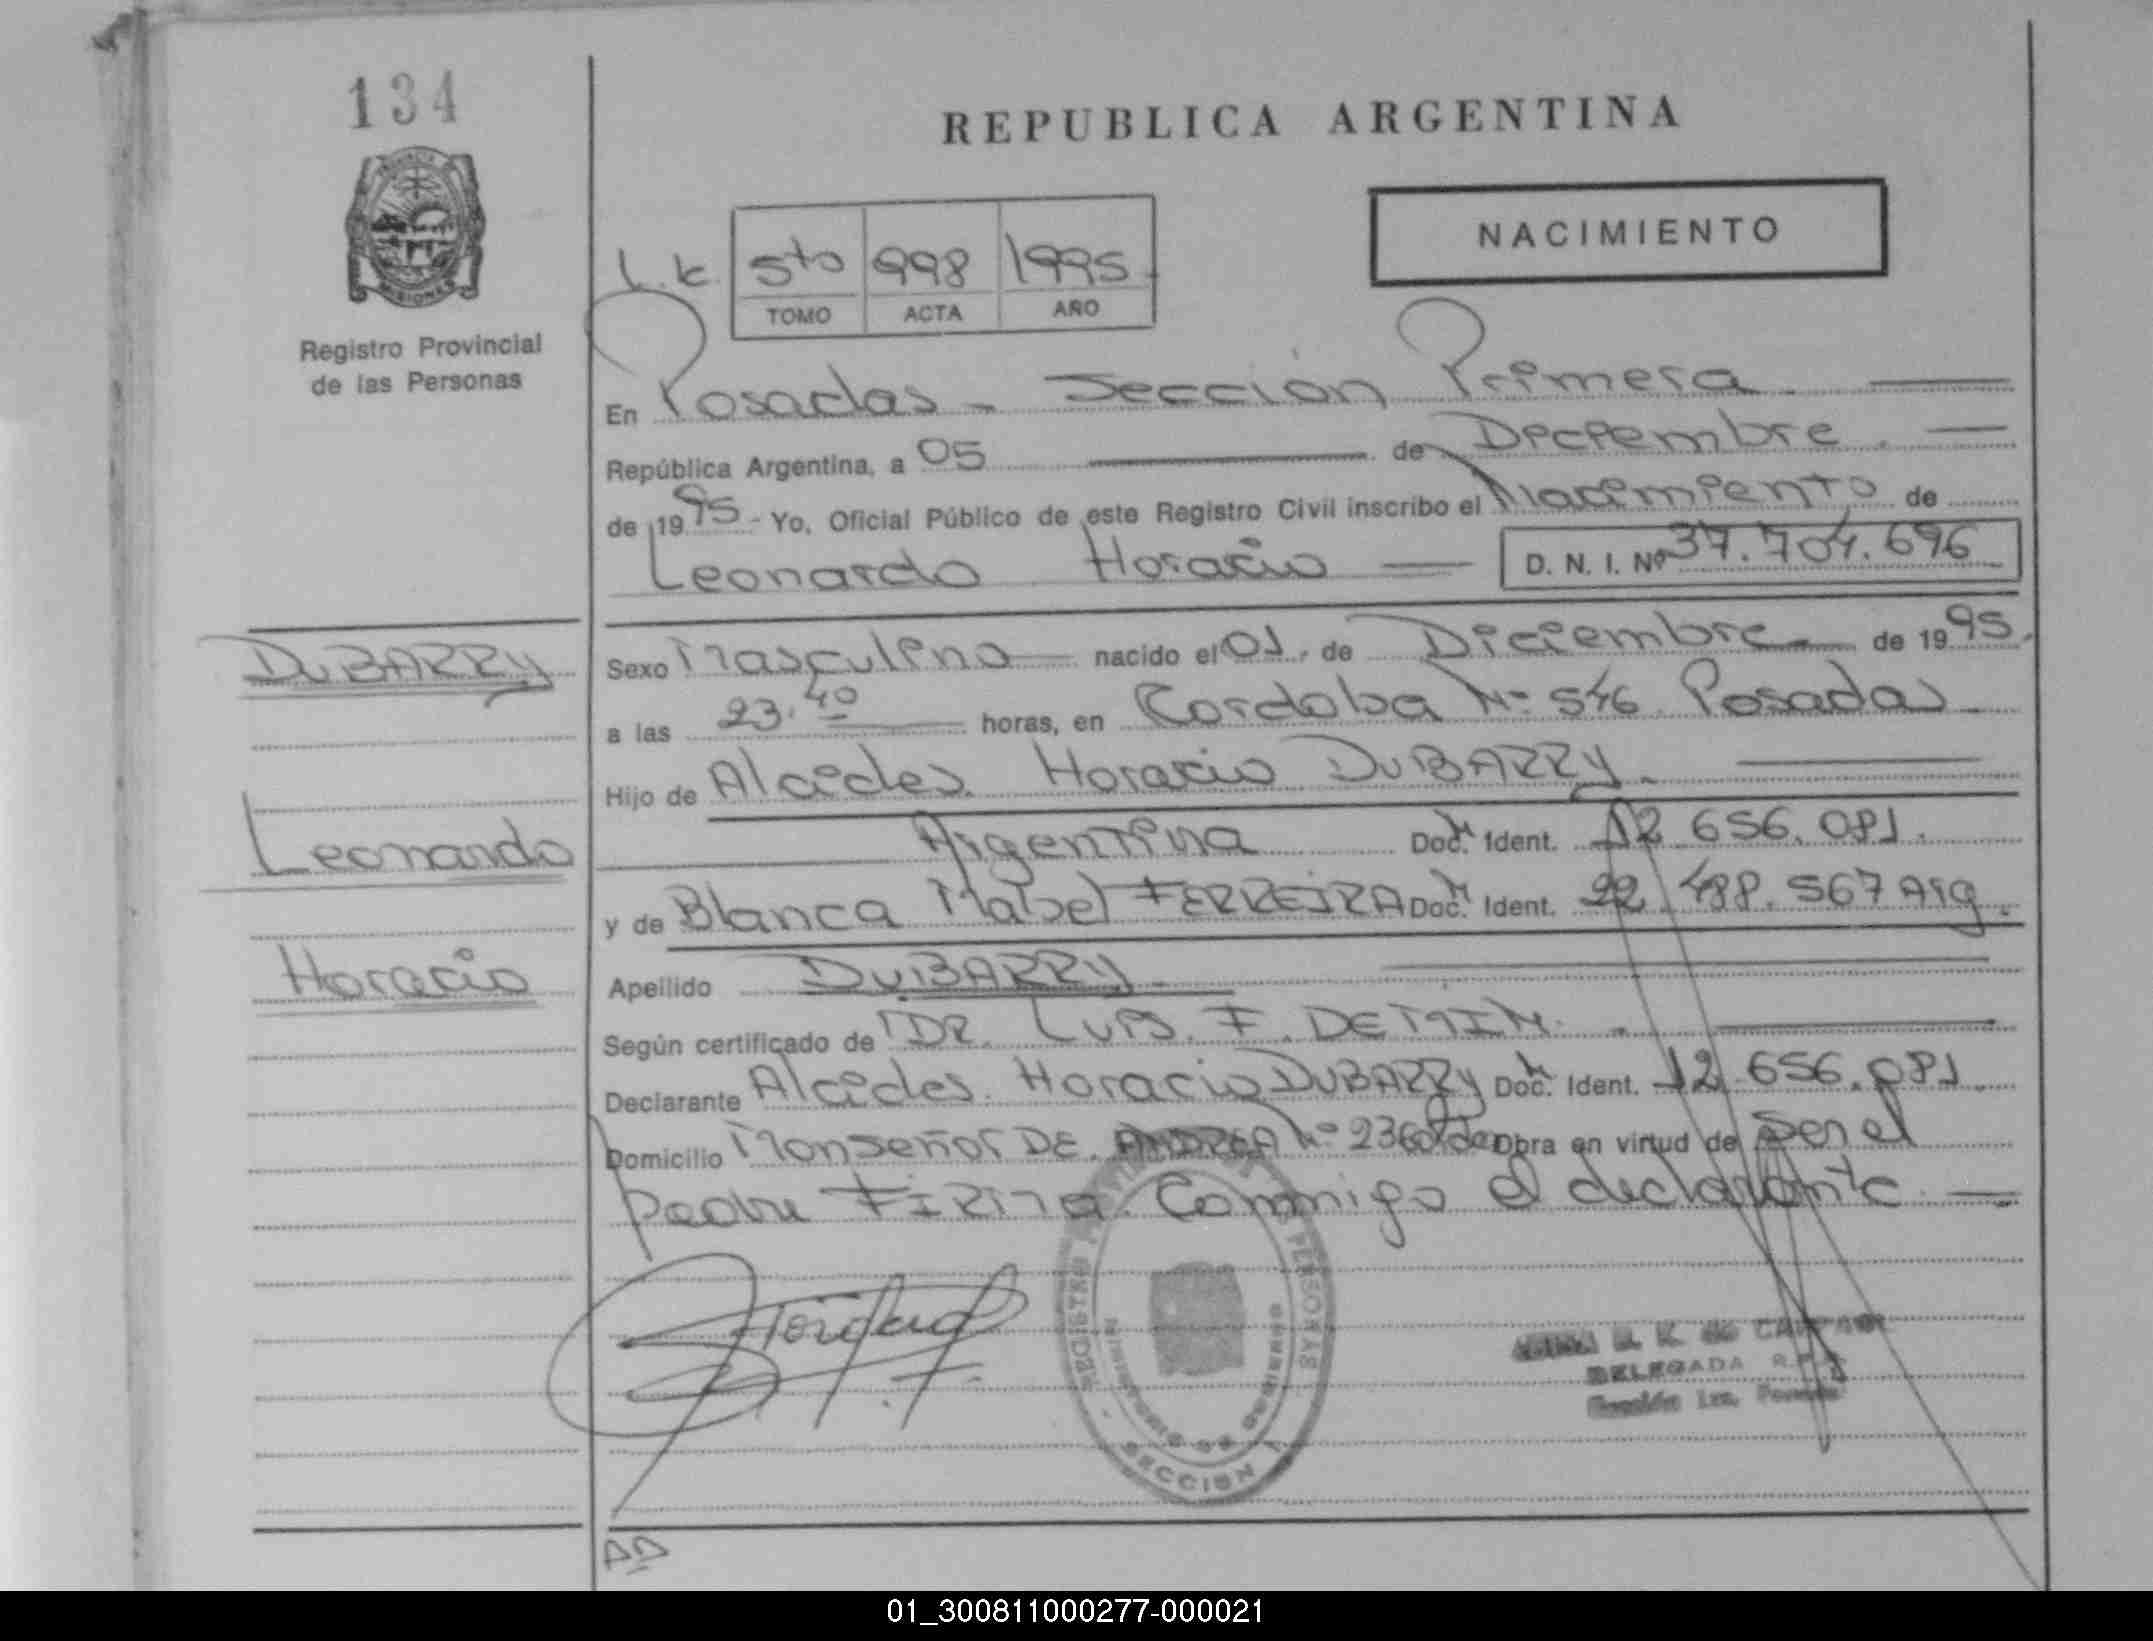 134
REPUBLICA ARGENTINA
NACIMIENTO
MISIONES
L.k. 5to 998 1995
TOMO ACTA AÑO
Registro Provincial
de las Personas
En Posadas - Sección Primera
República Argentina, a 05 de Diciembre
de 1995 - Yo, Oficial Público de este Registro Civil inscribo el Nacimiento de
Leonardo Horacio D. N. I. Nº 37.704.696
DuBARRy
Sexo Masculino nacido el 01. de Diciembre de 1995.
a las 23.40 horas, en Cordoba Nº 546 Posadas
Hijo de Alcides Horacio DuBARRy
Leonardo
Argentina Doc. Ident. 12.656.081.
y de Blanca Mabel FERREIRA Doc. Ident. 22.488.567 Arg.
Horacio
Apellido DuBARRy
Según certificado de DR. Luis. F. DEMIN.
Declarante Alcides Horacio DuBARRy Doc. Ident. 12.656.081.
Domicilio Monseñor DE. ANDREA Nº 2360 Obra en virtud de Ser el
padre FIRMA Conmigo el declarante
REGISTRO PERSONAS
MINISTERIO DE GOBIERNO
SECCION
DELEGADA
Sección 1ra. Posadas
01_300811000277-000021